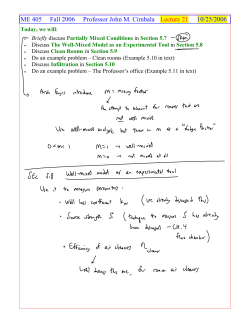 ME 405 Fall 2006 Professor John M. Cimbala Lecture 21 10/25/2006
Today, we will:
Briefly discuss Partially Mixed Conditions in Section 5.7
• Discuss The Well-Mixed Model as an Experimental Tool in Section 5.8
• Discuss Clean Rooms in Section 5.9
• Do an example problem – Clean rooms (Example 5.10 in text)
• Discuss Infiltration in Section 5.10
• Do an example problem – The Professor's office (Example 5.11 in text)
Arch Engrs introduce m = mixing factor
An attempt to account for rooms that are
not well mixed
Use well-mixed analysis, but throw in m as a "fudge factor"
0<m<1 m=1 → well-mixed
m=0 → not mixed at all
SEC. 5.8 Well-mixed model as an experimental tool
Use it to measure parameters:
- Wall loss coefficient kw (we already discussed this)
- Source strength S (technique to measure S has already
been discussed – CH. 4
flux chamber)
• Efficiency of air cleaners η cleaner
Let's discuss this one, for room air cleaners